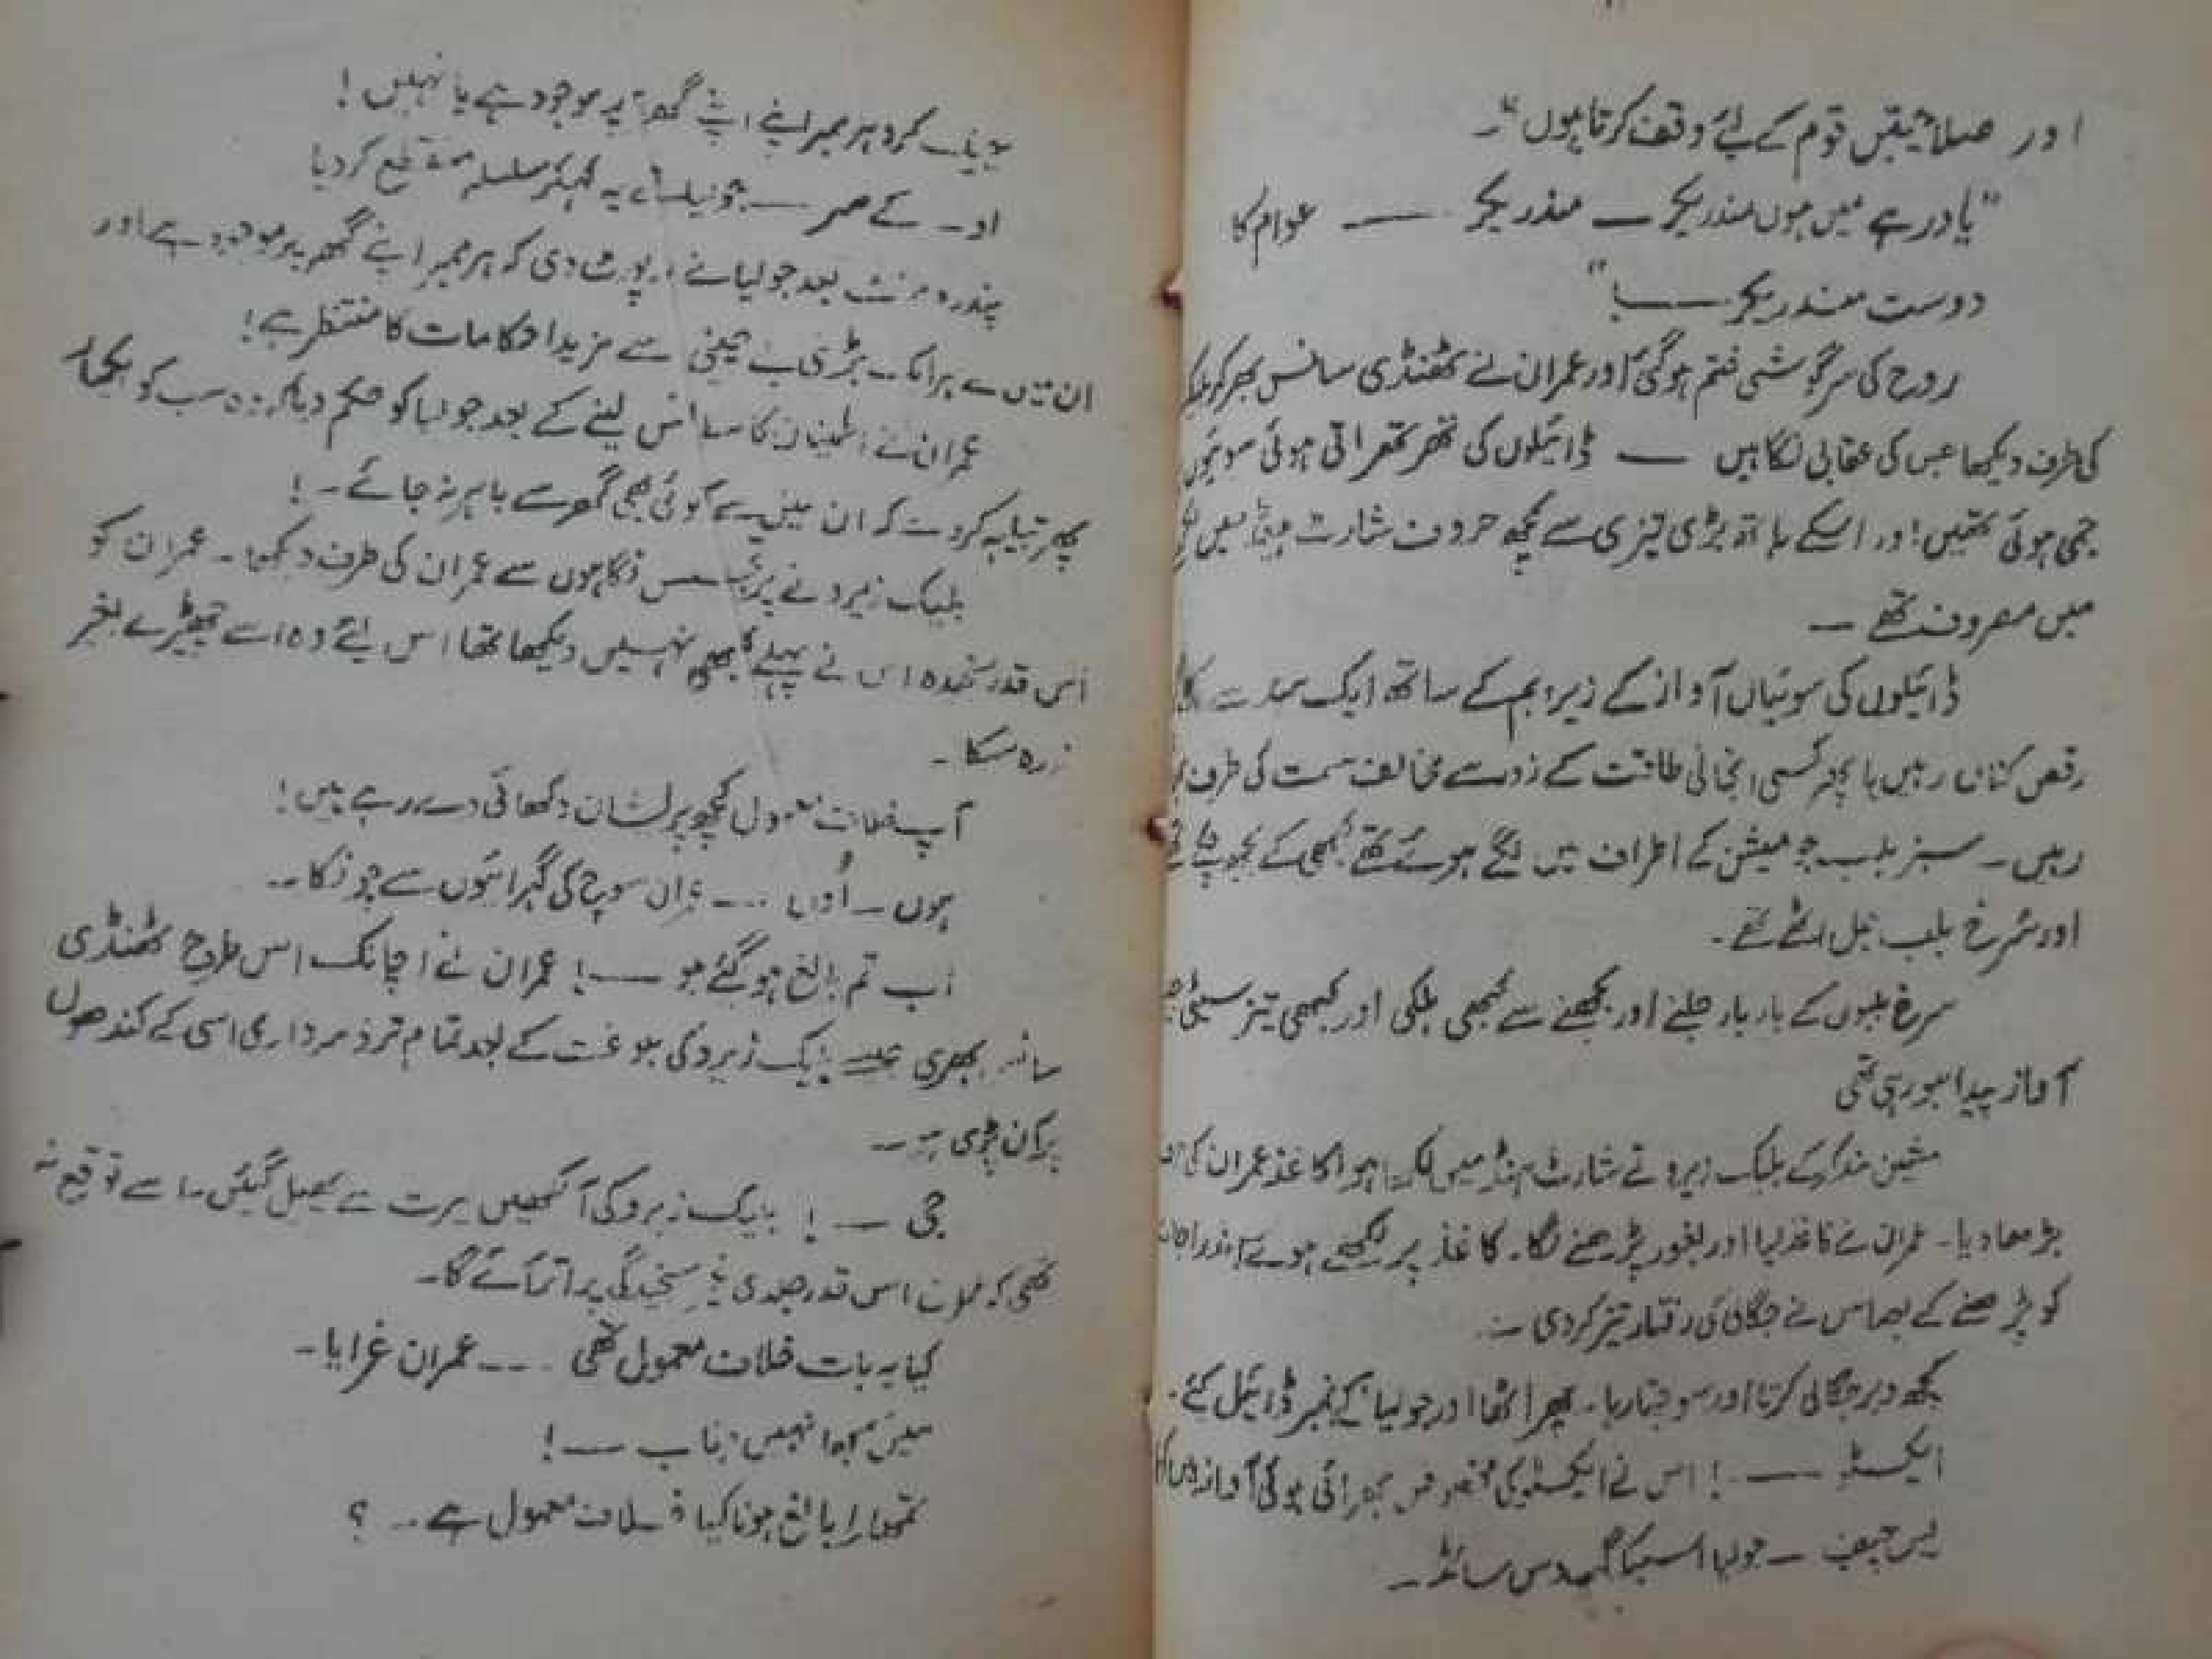 اور صلاحیتیں قوم کے لئے وقف کرتا ہوں"۔
"یاد رہے میں ہوں مندریکر — مندریکر — عوام کا
دوست مندریکر — !"
روح کی سرگوشی ختم ہوگئی اور عمران نے ٹھنڈی سانس بھر کر بلیک
کی طرف دیکھا جس کی عقابی نگاہیں — ڈائیلوں کی تھر تھراتی ہوئی سوئیوں
جمی ہوئی تھیں! اور اسکے ہاتھ بڑی تیزی سے کچھ حروف شارٹ ہینڈ میں
میں مصروف تھے —
ڈائیلوں کی سوئیاں آواز کے زیر و بم کے ساتھ ایک سمت سے
رقص کناں رہیں یا پھر کسی انجانی طاقت کے زور سے مخالف سمت کی طرف
رہیں ۔ سبز بلب جو میشن کے اطراف میں لگے ہوئے تھے کبھی کے بجھ چکے تھے
اور سُرخ بلب جل اٹھے تھے ۔
سرخ بلبوں کے بار بار جلنے اور بجھنے سے کبھی ہلکی اور کبھی تیز سیٹی
آواز پیدا ہو رہی تھی
مشین بند کر کے بلیک زیرو نے شارٹ ہینڈ میں لکھا ہوا کاغذ عمران کی
بڑھا دیا ۔ عمران نے کاغذ لیا اور بغور پڑھنے لگا ۔ کاغذ پر لکھے ہوئے
کو پڑھنے کے بعد اس نے جگالی کی رفتار تیز کر دی ۔
کچھ دیر جگالی کرتا اور سوچتا رہا ۔ پھر اٹھا اور جولیا کے نمبر ڈائیل کئے ۔
ایکسٹو — ! اس نے ایکسٹو کی مخصوص بھرائی ہوئی آواز میں کہا
یس چیف — جولیا دس سائڈ ۔
کرو ہر ممبر اپنے اپنے گھر پر موجود ہے یا نہیں !
او ۔ کے سر — جولیا نے یہ کہکر سلسلہ منقطع کر دیا
پندرہ منٹ بعد جولیا نے رپورٹ دی کہ ہر ممبر اپنے گھر پر موجود ہے اور
ان میں سے ہر ایک بڑی بے چینی سے مزید احکامات کا منتظر ہے !
عمران نے اطمینان کا سانس لینے کے بعد جولیا کو حکم دیا کہ وہ سب کو
پھر تنبیہہ کر دے کہ ان میں سے کوئی بھی گھر سے باہر نہ جائے ۔ !
بلیک زیرو نے پر تجسس نگاہوں سے عمران کی طرف دیکھا ۔ عمران کو
اس قدر سنجیدہ اس نے پہلے کبھی نہیں دیکھا تھا اس لئے وہ اسے چھیڑے بغیر
نہ رہ سکا ۔
آپ خلاف معمول کچھ پریشان دکھائی دے رہے ہیں !
ہوں ۔ اُوں ۔۔۔ عمران سوچ کی گہرائیوں سے چونکا ۔
اب تم بالغ ہو گئے ہو — ! عمران نے اچانک اس طرح ٹھنڈی
سانس بھری جیسے بلیک زیرو کی بلوغت کے بعد تمام تر ذمہ داری اسی کے کندھوں
پر آن پڑی ہو ۔
جی — ! بلیک زیرو کی آنکھیں حیرت سے پھیل گئیں ۔ اسے توقع نہ
تھی کہ عمران اس قدر جلدی غیر سنجیدگی پر اتر آئے گا ۔
کیا یہ بات خلاف معمول تھی ۔۔۔ عمران غرایا ۔
میں سمجھا نہیں جناب — !
تمہارا بالغ ہونا کیا خلاف معمول ہے ۔۔ ؟